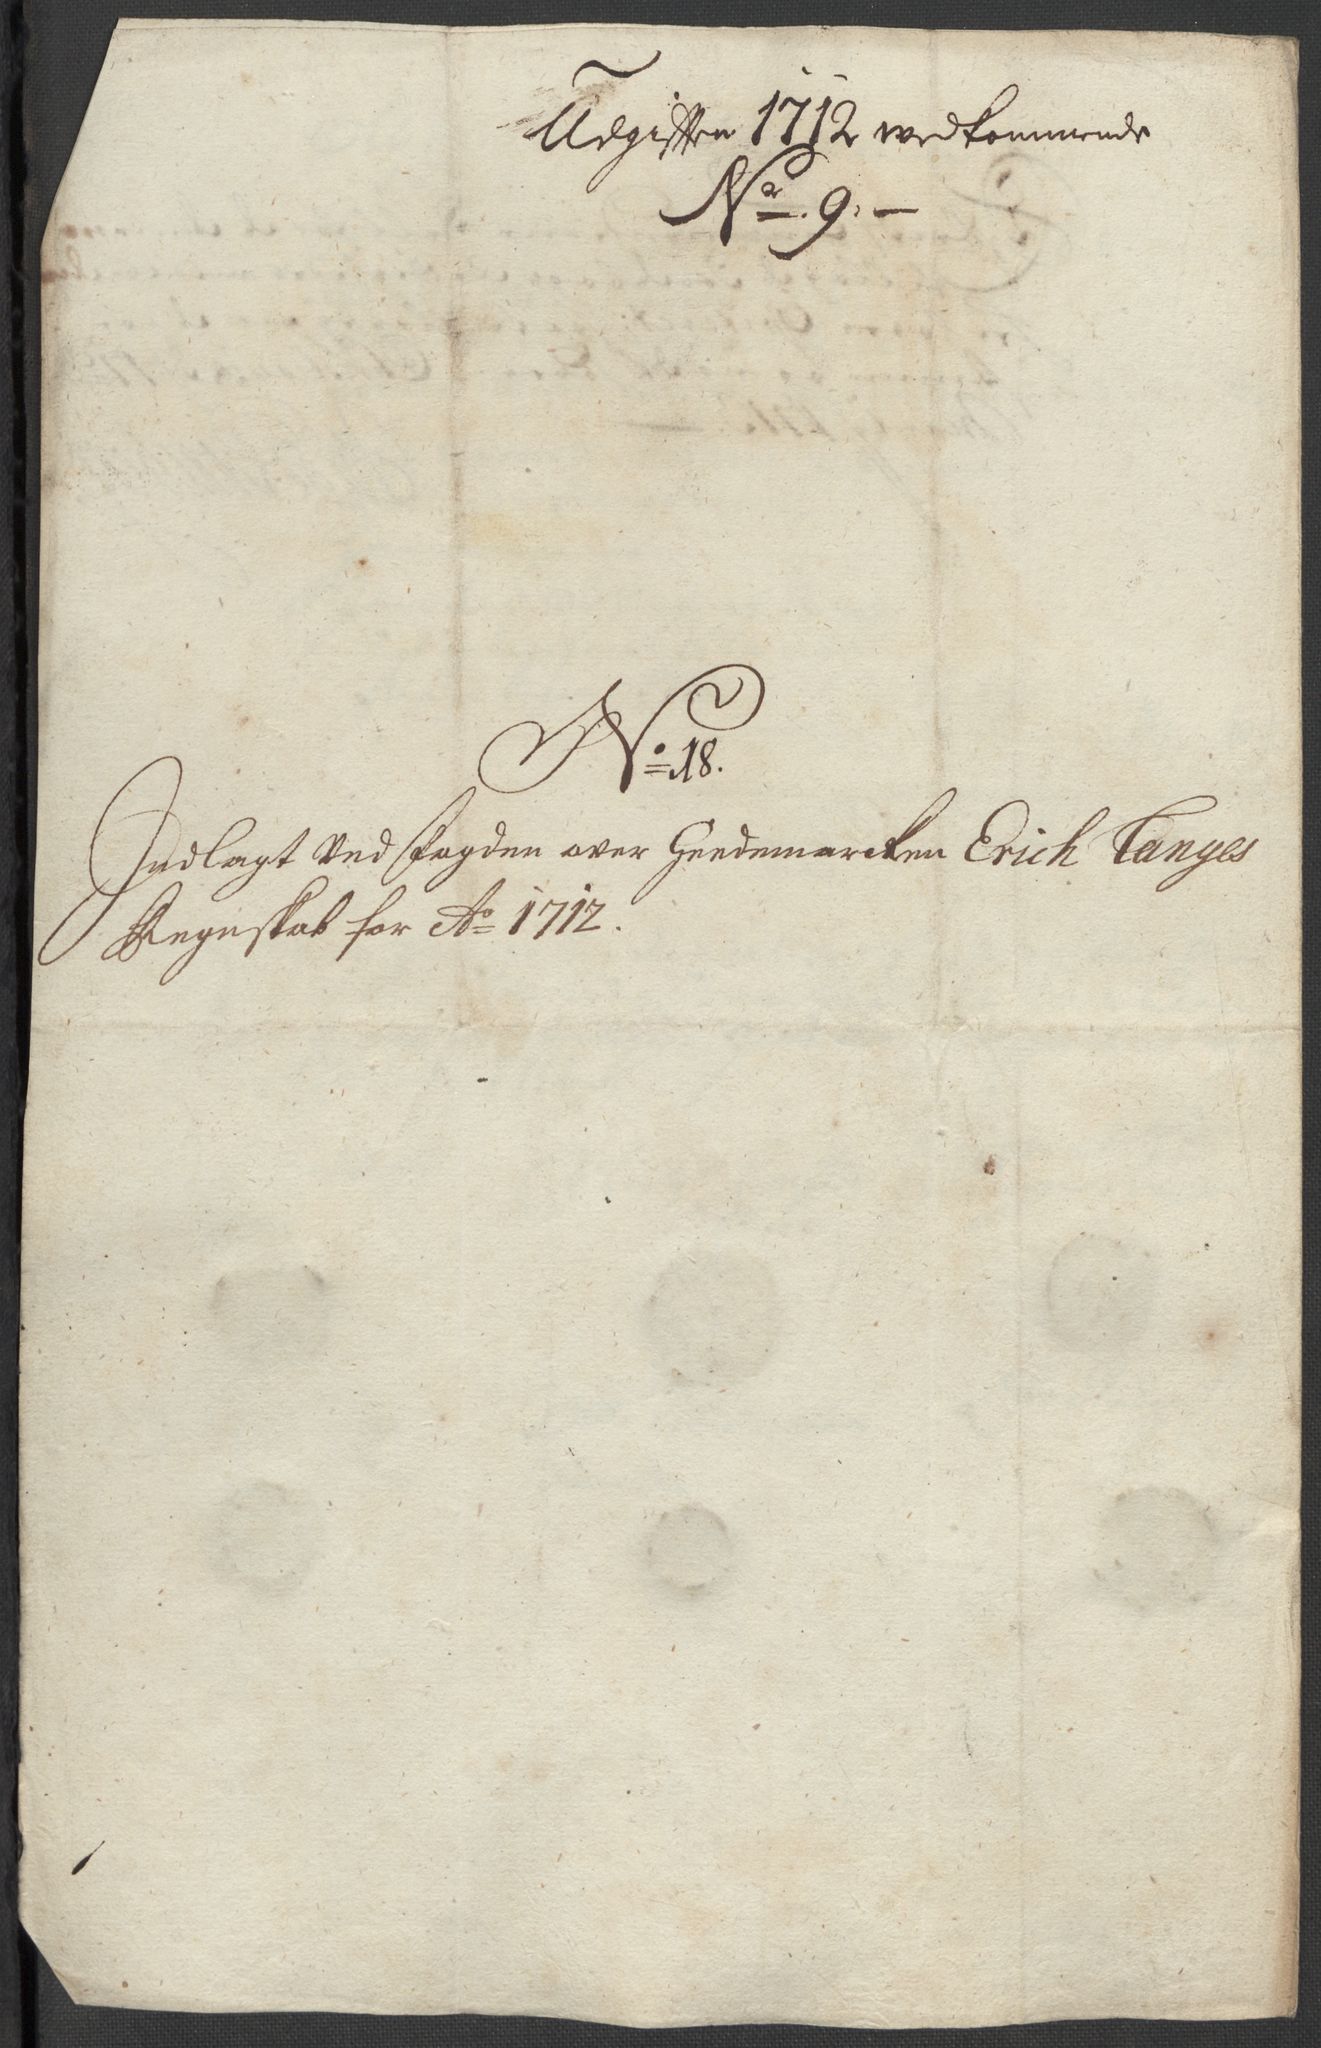 Udgifften 1712 wedkommende
Nr. 9. —
No. 18.
Indlagt Ved fogden over Heedemarcken Erich Tanges
Regnskab for Ao 1712.